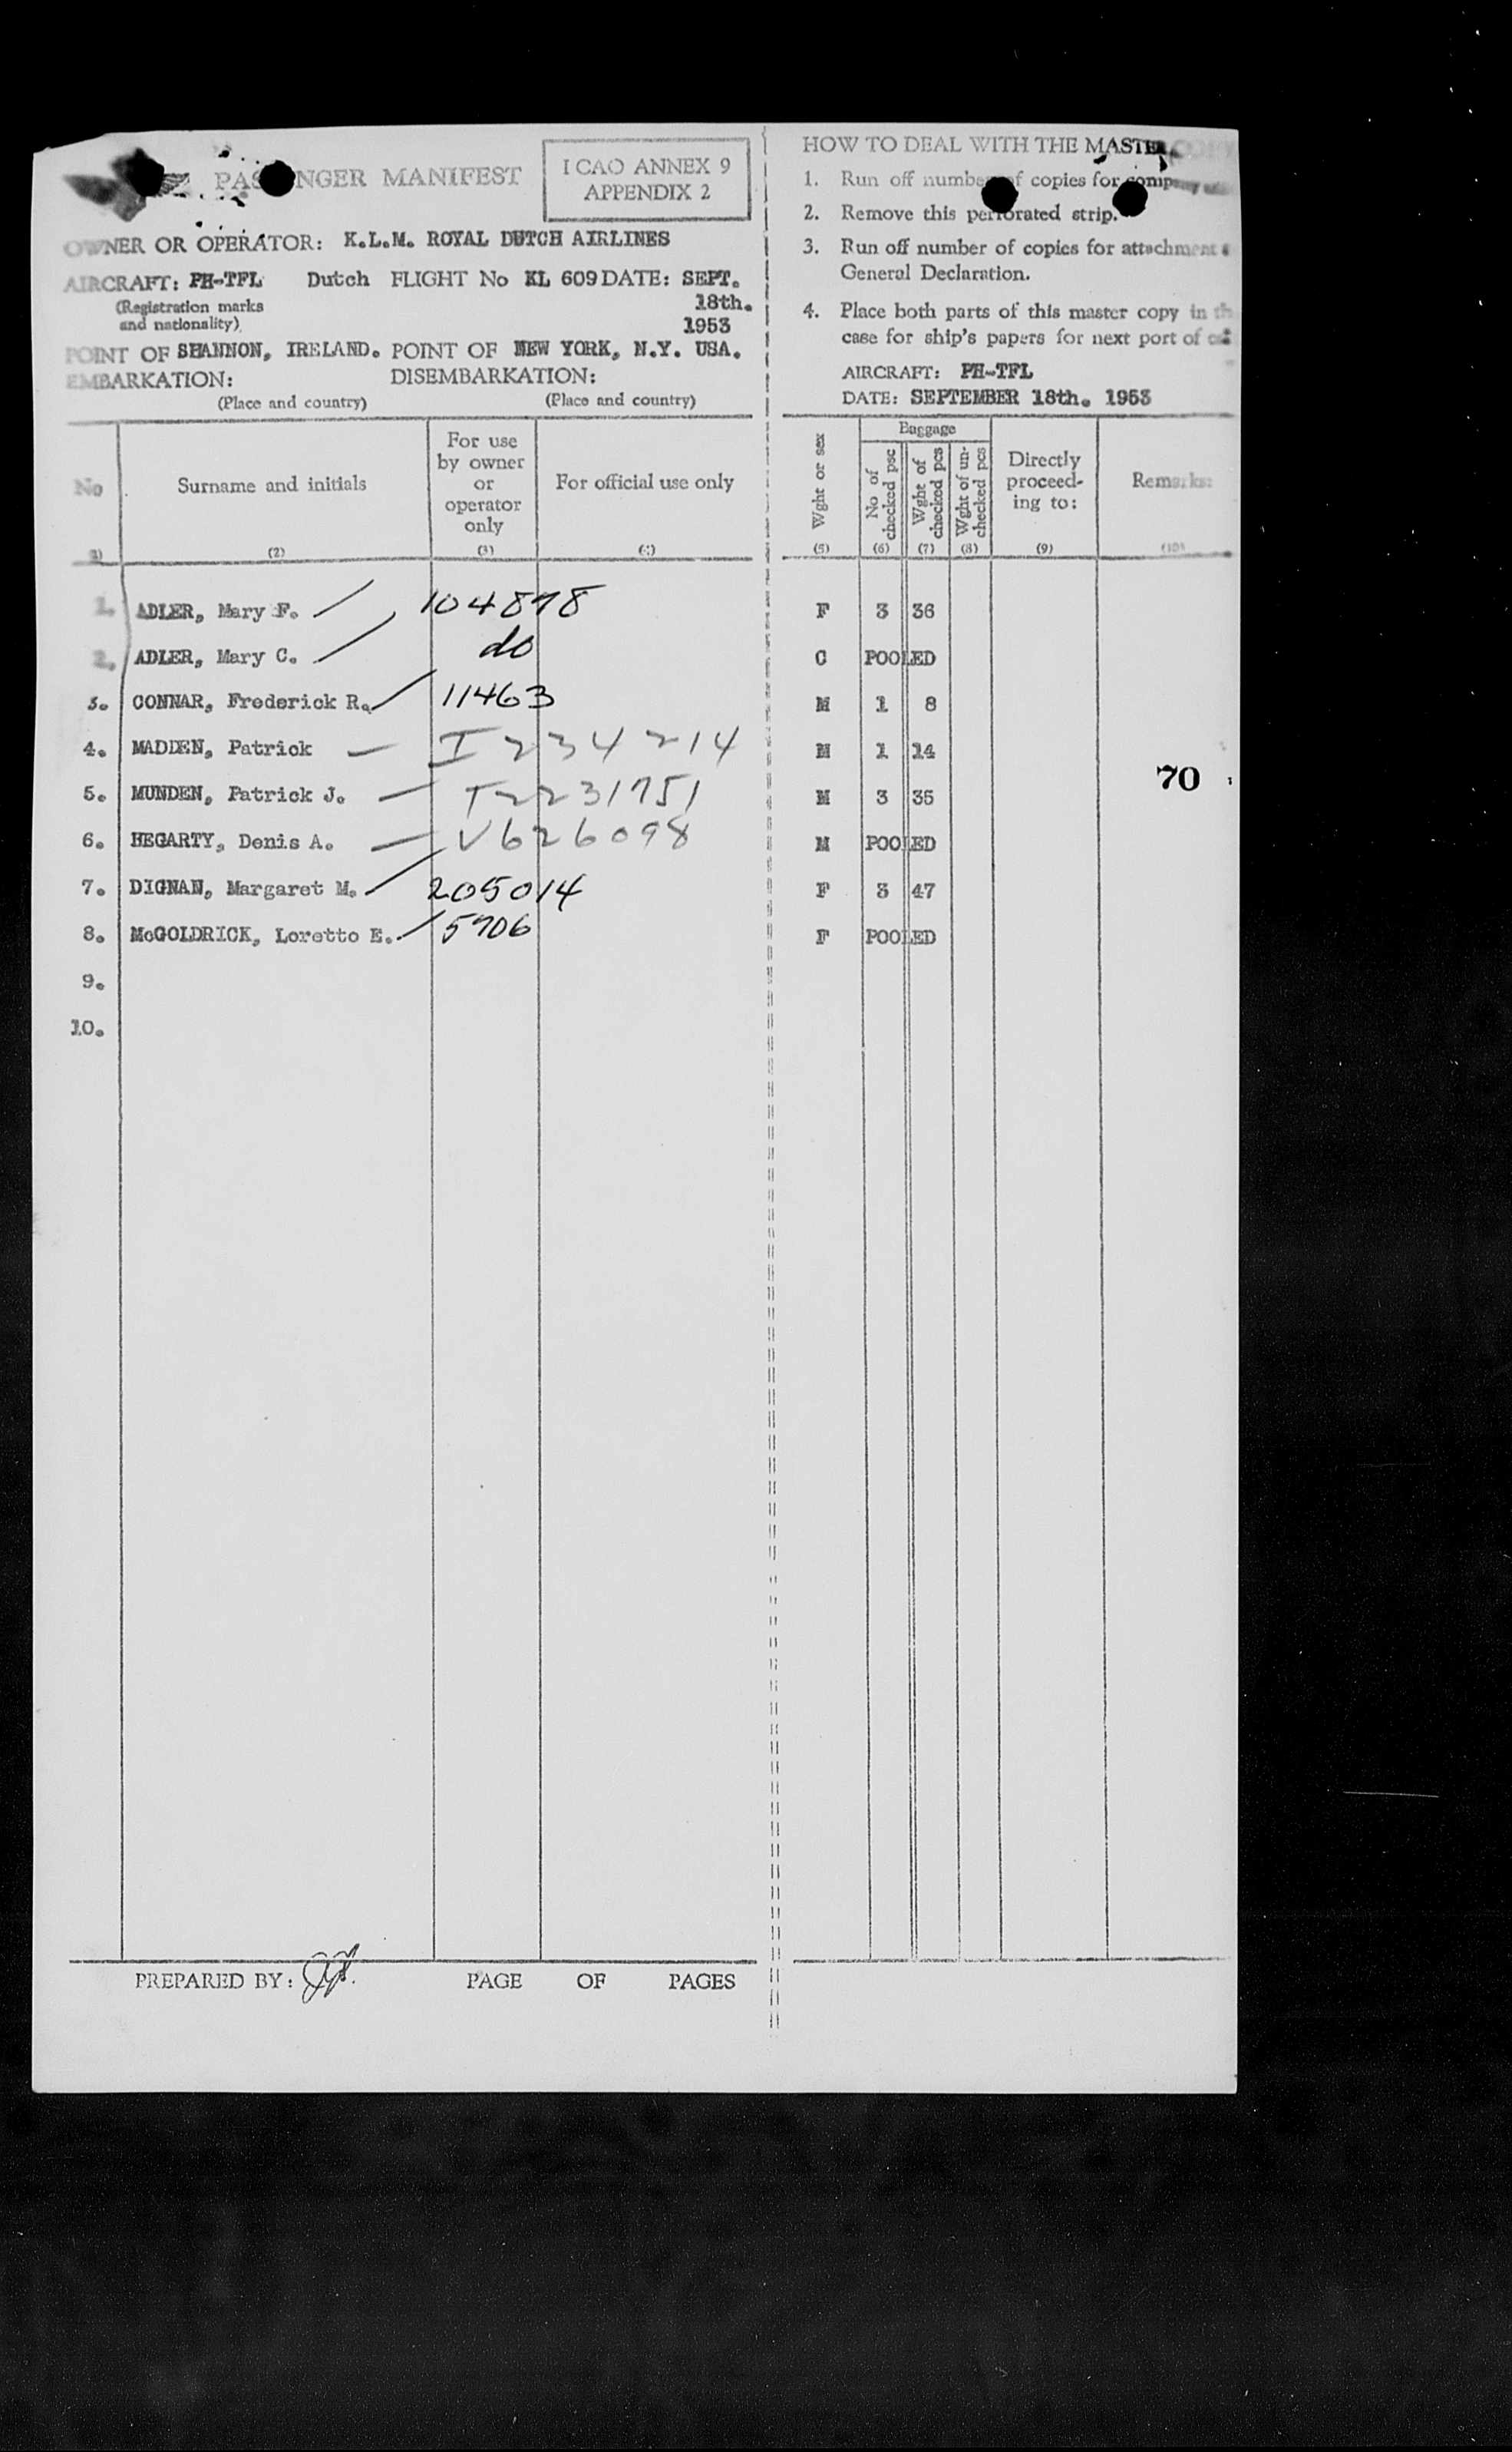 PASSENGER MANIFEST
I CAO ANNEX 9
APPENDIX 2
OWNER OR OPERATOR: K.L.M. ROYAL DUTCH AIRLINES
AIRCRAFT: PH-TFL Dutch FLIGHT No KL 609 DATE: SEPT.
(Registration marks 18th.
and nationality) 1953
POINT OF SHANNON, IRELAND. POINT OF NEW YORK, N.Y. USA.
EMBARKATION: DISEMBARKATION:
(Place and country) (Place and country)
No Surname and initials For use by owner or operator only For official use only
(2) (3) (4)
1. ADLER, Mary F. 104878
2. ADLER, Mary C. do
3. CONNAR, Frederick R. 11463
4. MADDEN, Patrick I 234214
5. MUNDEN, Patrick J. I2231751
6. HEGARTY, Denis A. V626098
7. DIGNAN, Margaret M. 205014
8. McGOLDRICK, Loretto E. 5706
9.
10.
PREPARED BY: PAGE OF PAGES
HOW TO DEAL WITH THE MASTER COPY
1. Run off number of copies for company
2. Remove this perforated strip.
3. Run off number of copies for attachment
General Declaration.
4. Place both parts of this master copy in the
case for ship's papers for next port of
AIRCRAFT: PH-TFL
DATE: SEPTEMBER 18th. 1953
Baggage
Wght or sex No of checked psc Wght of checked pcs Wght of un-checked pcs Directly proceed-ing to: Remarks:
(5) (6) (7) (8) (9) (10)
F 3 36
C POOLED
M 1 8
M 1 14
70
M 3 35
M POOLED
F 3 47
F POOLED